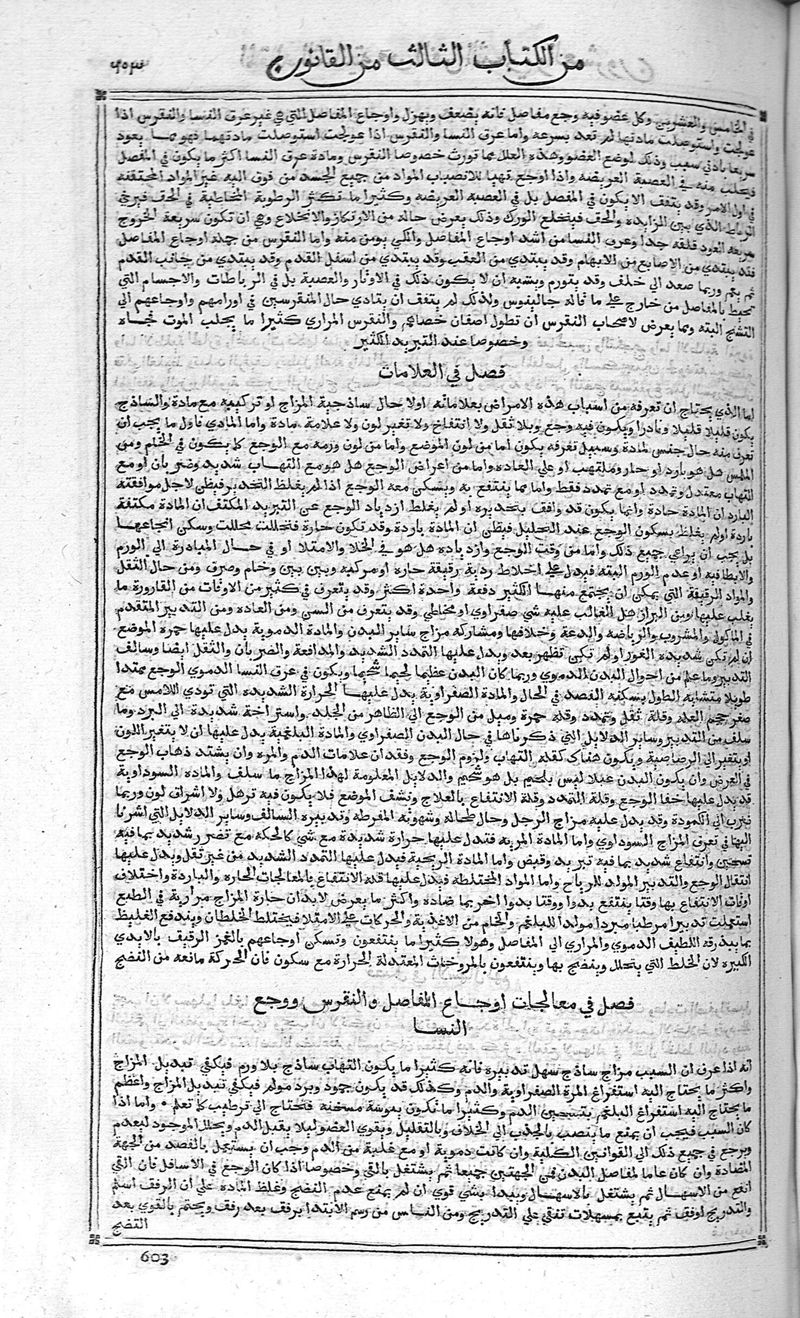 من الكتاب الثالث من القانون
في الخامس والعشرون وكل عضو فيه وجع مفاصل فانه يضعف ويهزل واوجاع المفاصل التي هي غير عرق النسا والنقرس اذا
عولجت واستوصلت مادتها لم تعد بسرعة واما عرق النسا والنقرس اذا عولجت استوصلت مادتهما فهو مما يعود
سريعا بادني سبب وذلك لوضع العضو وهذه العلل مما تورث خصوصا النقرس ومادة عرق النسا اكثر ما يكون في المفصل
فينجلب منه في العصبة العريضه واذا اوجع تهيا للانصباب المواد من جميع الجسد من فوق اليه غير المواد المحتقنه
في اول الامر وقد يتفق الا يكون في المفصل بل في العصبه العريضه وكثيرا ما تكثر الرطوبة المخاطية في الحق فيرخي
الرباط الذي بين الزايده والحق فينخلع الورك وذلك يعرض حاله من الارتكاز والانخلاع وهي ان تكون سريعة الخروج
سريعه العود قلقه جدا وعرق النسا من اشد اوجاع المفاصل والكي يومن منه واما النقرس من جملة اوجاع المفاصل
فقد يبتدي من الاصابع من الابهام وقد يبتدي من العقب وقد يبتدي من اسفل القدم وقد يبتدي من جانب القدم
ثم يعم وربما صعد الي خلف وقد يتورم ويشبه ان لا يكون ذلك في الاوتار والعصبة بل في الرباطات والاجسام التي
تحيط بالمفاصل من خارج علي ما قاله جالينوس ولذلك لم يتفق ان يتادي حال المنقرسين في اورامهم واوجاعهم الي
التشنج البته ومما يعرض لاصحاب النقرس ان تطول اصفان خصاهم والنقرس المراري كثيرا ما يجلب الموت فجاه
وخصوصا عند التبريد الكثير
فصل في العلامات
اما الذي يحتاج ان تعرفه من اسباب هذه الامراض بعلاماته اولا حال ساذجية المزاج او تركيبه مع مادة والساذج
يكون قليلا قليلا ونادرا ويكون فيه وجع وبلا ثقل ولا انتفاخ ولا تغير لون ولا علامة مادة واما المادي فاول ما يجب ان
تعرف منه حال جنس المادة وسبيل تعرفه يكون اما من لون الموضع واما من لون ورمه مع الوجع كما يكون في الخام ومن
الملمس هل هو بارد او حار وملتهب او علي العاده واما من اعراض الوجع هل هو مع التهاب شديد وضربان او مع
التهاب معتدل وتمدد او مع تمدد فقط واما مما ينتفع به ويسكن معه الوجع اذا لم يغلط التخدير فيظن لاجل موافقته
البارد ان المادة حادة وانما يكون قد وافقت بتخديره او لم يغلط ازدياد الوجع عن التبريد المكثف ان المادة مكثفة
باردة او لم يغلط بسكون الوجع عند التحليل فيظن ان المادة باردة وقد تكون حارة فتحللت محللت وسكن ايجاعها
بل يجب ان يراعي جميع ذلك واما من وقت الوجع وازدياده هل هو في الخلا والامتلا او في حال المبادرة الي الورم
والابطا فيه او عدم الورم البته فيدل علي اخلاط ردية رقيقة حاره او مركبه وبين بين وخام وصرف ومن حال الثقل
والمواد الرقيقة التي يمكن ان يجتمع منها الكثير دفعة واحدة اكثر وقد يتعرف في كثير من الاوقات من القارورة ما
يغلب عليها ومن البراز هل الغالب عليه شي صفراوي او مخاطي وقد يتعرف من السن ومن العاده ومن التدبير المتقدم
في الماكول والمشروب والرياضه والدعة وخلافها ومشاركة مزاج ساير البدن والمادة الدموية يدل عليها حمرة الموضع
ان لم تكن شديدة الغور او لم تكن تظهر بعد ويدل عليها التمدد الشديد والمدافعة والضربان والثقل ايضا وسالف
التدبير وما علم من احوال البدن الدموي وربما كان البدن عظيما لحيما شحيما ويكون في عرق النسا الدموي الوجع ممتدا
طويلا متشابه الطول يسكنه الفصد في الحال والمادة الصفراوية يدل عليها الحرارة الشديده التي تودي اللامس مع
صغر حجم العلة وقلة ثقل وتمدد وقلة حمرة وميل من الوجع الي الظاهر من الجلد واستراحة شديدة الي البرد وما
سلف من التدبير وساير الدلايل التي ذكرناها في حال البدن الصفراوي والمادة البلغمية يدل عليها ان لا يتغير اللون
او يتغير الي الرصاصية ويكون هناك كقلة التهاب ولزوم الوجع وفقدان علامات الدم والمره وان يشتد ذهاب الوجع
في العرض وان يكون البدن عبلا ليس بلحيم بل هو شحيم والدلايل المعلومة لهذا المزاج ما سلف والمادة السوداوية
قد يدل عليها خفا الوجع وقلة التمدد وقلة الانتفاع بالعلاج ونشف الموضع فلا يكون فيه ترهل ولا اشراق لون وربما
ضرب الي الكمودة وقد يدل عليه مزاج الرجل وحال طحاله وشهوته المفرطه وتدبيره السالف وساير الدلايل التي اشرنا
اليها في تعرف المزاج السوداوي واما المادة المريه فتدل عليها حرارة شديدة مع شي كالحكه مع تضرر شديد بما فيه
تسخين وانتفاع شديد بما فيه تبريد وقبض واما المادة الريحية فيدل عليها التمدد الشديد من غير ثقل ويدل عليها
انتقال الوجع والتدبير المولد للرياح واما المواد المختلطه فيدل عليها قلة الانتفاع بالمعالجات الحاره والباردة واختلاف
اوقات الانتفاع بها وقتا ينتفع بدوا ووقتا بدوا اخر بما ضاده واكثر ما يعرض لابدان حارة المزاج مرارية في الطبع
استعملت تدبيرا مرطبا مبردا مولدا للبلغم والخام من الاغذية والحركات علي الامتلا فيختلط الخلطان ويندفع الغليظ
بما يبذرقه اللطيف الدموي والمراري الي المفاصل وهولا كثيرا ما ينتفعون وتسكن اوجاعهم بالغمز الرقيق بالايدي
الكثيره لان الخلط التي يتحلل وينضج بها وينتفعون بالمروخات المعتدلة الحرارة مع سكون فان الحركة مانعه من النضج
فصل في معالجات اوجاع المفاصل والنقرس ووجع
النسا
انه اذا عرف ان السبب مزاج ساذج سهل تدبيره فانه كثيرا ما يكون التهاب ساذج بلا ورم فيكفي تبديل المزاج
واكثر ما يحتاج اليه استفراغ المرة الصفراوية والدم وكذلك قد يكون جمود وبرد مولم فيكفي تبديل المزاج واعظم
ما يحتاج اليه استفراغ البلغم بتسخين الدم وكثيرا ما تكون يبوسة مسخنه فتحتاج الي ترطيب كما تعلم واما اذا
كان السبب فيجب ان يمنع ما ينصب بالجذب الي الخلاف وبالتقليل ويقوي العضو ليلا يقبل الدم ويحلل الموجود ليعدم
ويرجع في جميع ذلك الي القوانين الكلية وان كانت دموية او مع غلبة من الدم وجب ان يستعجل بالفصد من الجهة
المضادة وان كان عاما لمفاصل البدن فمن الجهتين جميعا ثم يشتغل بالقي وخصوصا اذا كان الوجع في الاسافل فان القي
انفع من الاسهال ثم يشتغل بالاسهال ويبدا بشي قوي ان لم يمنع عدم النضج وغلظ المادة علي ان الرفق اسلم
والتدريج اوفق ثم يتبع بمسهلات تنقي علي التدريج ومن الناس من رسم الابتدا برفق بعد رفق ويختم بالقوي بعد
النضج
603